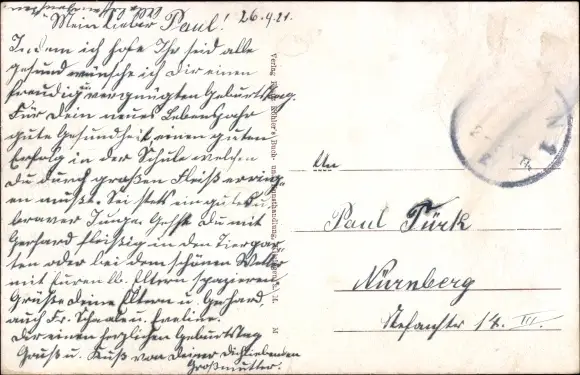 Mein lieber Paul! 26.4.21.
Indem ich hoffe Ihr seid alle
gesund wünsche ich Dir einen
freudig vergnügten Geburtstag.
Für Dein neues Lebensjahr
gute Gesundheit, einen guten
Erfolg in der Schule welchen
Du durch großen Fleiß erring-
en mußt. Sei stets ein guter u.
braver Junge. Gehst Du mit
Gerhard fleißig in den Tiergar-
ten oder bei dem schönen Wetter
mit Euren lb. Eltern spazieren.
Grüße Deine Eltern u. Gerhard,
auch Fr.
Dir einen herzlichen Geburtstag
Gruß u. Kuß von Deiner Dichliebenden
Großmutter.
Verlag Buch- und Kunsthandlung,
An
Paul Türk
Nürnberg
Stefanstr 14. III.